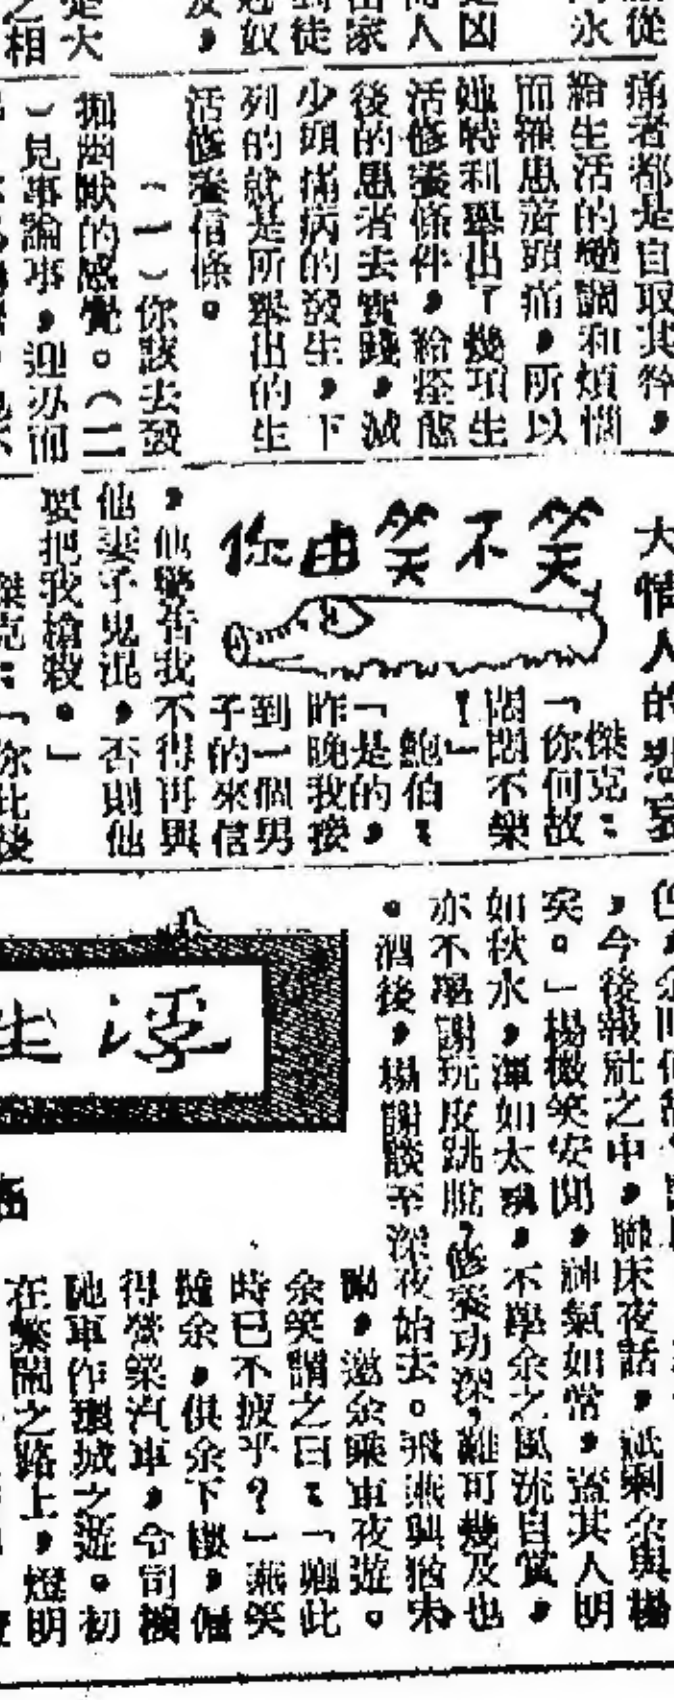 從
永
凶
人
家
徒
奴
及,
大
之相
痛者都是自取其咎,
給生活的變調和煩惱
而罹患著頭痛,所以
她特利舉出了幾項生
活修養條件,給
後的患者去實踐,減
少頭痛病的發生,下
列的就是所舉出的生
活修養信條。
(一)你該去發
掘幽默的感覺。(二
)見事論事,迎刃而
大情人的悲哀
笑不笑由你
傑克:
「你何故
悶悶不樂
!」
鮑伯:
「是的,
昨晚我接
到一個男
子的來信
,他警告我不得再與
他妻子鬼混,否則他
要把我槍殺。」
傑克:「你此後
,今後報社之中,聯床夜話,祇剩余與楊
矣。」楊微笑安閒,神氣如常,蓋其人明
如秋水,渾如太璞,不學余之風流自賞,
亦不學謝玩皮跳脫,修養功深,難可幾及也
。酒後,楊謝談至深夜始去。飛燕興猶未
闌,邀余乘車夜遊。
余笑謂之曰:「卿此
時已不疲乎?」燕笑
隨余,俱余下樓,僱
得營業汽車,令司機
馳車作環城之遊。初
在繁鬧之路上,燈明
浮生